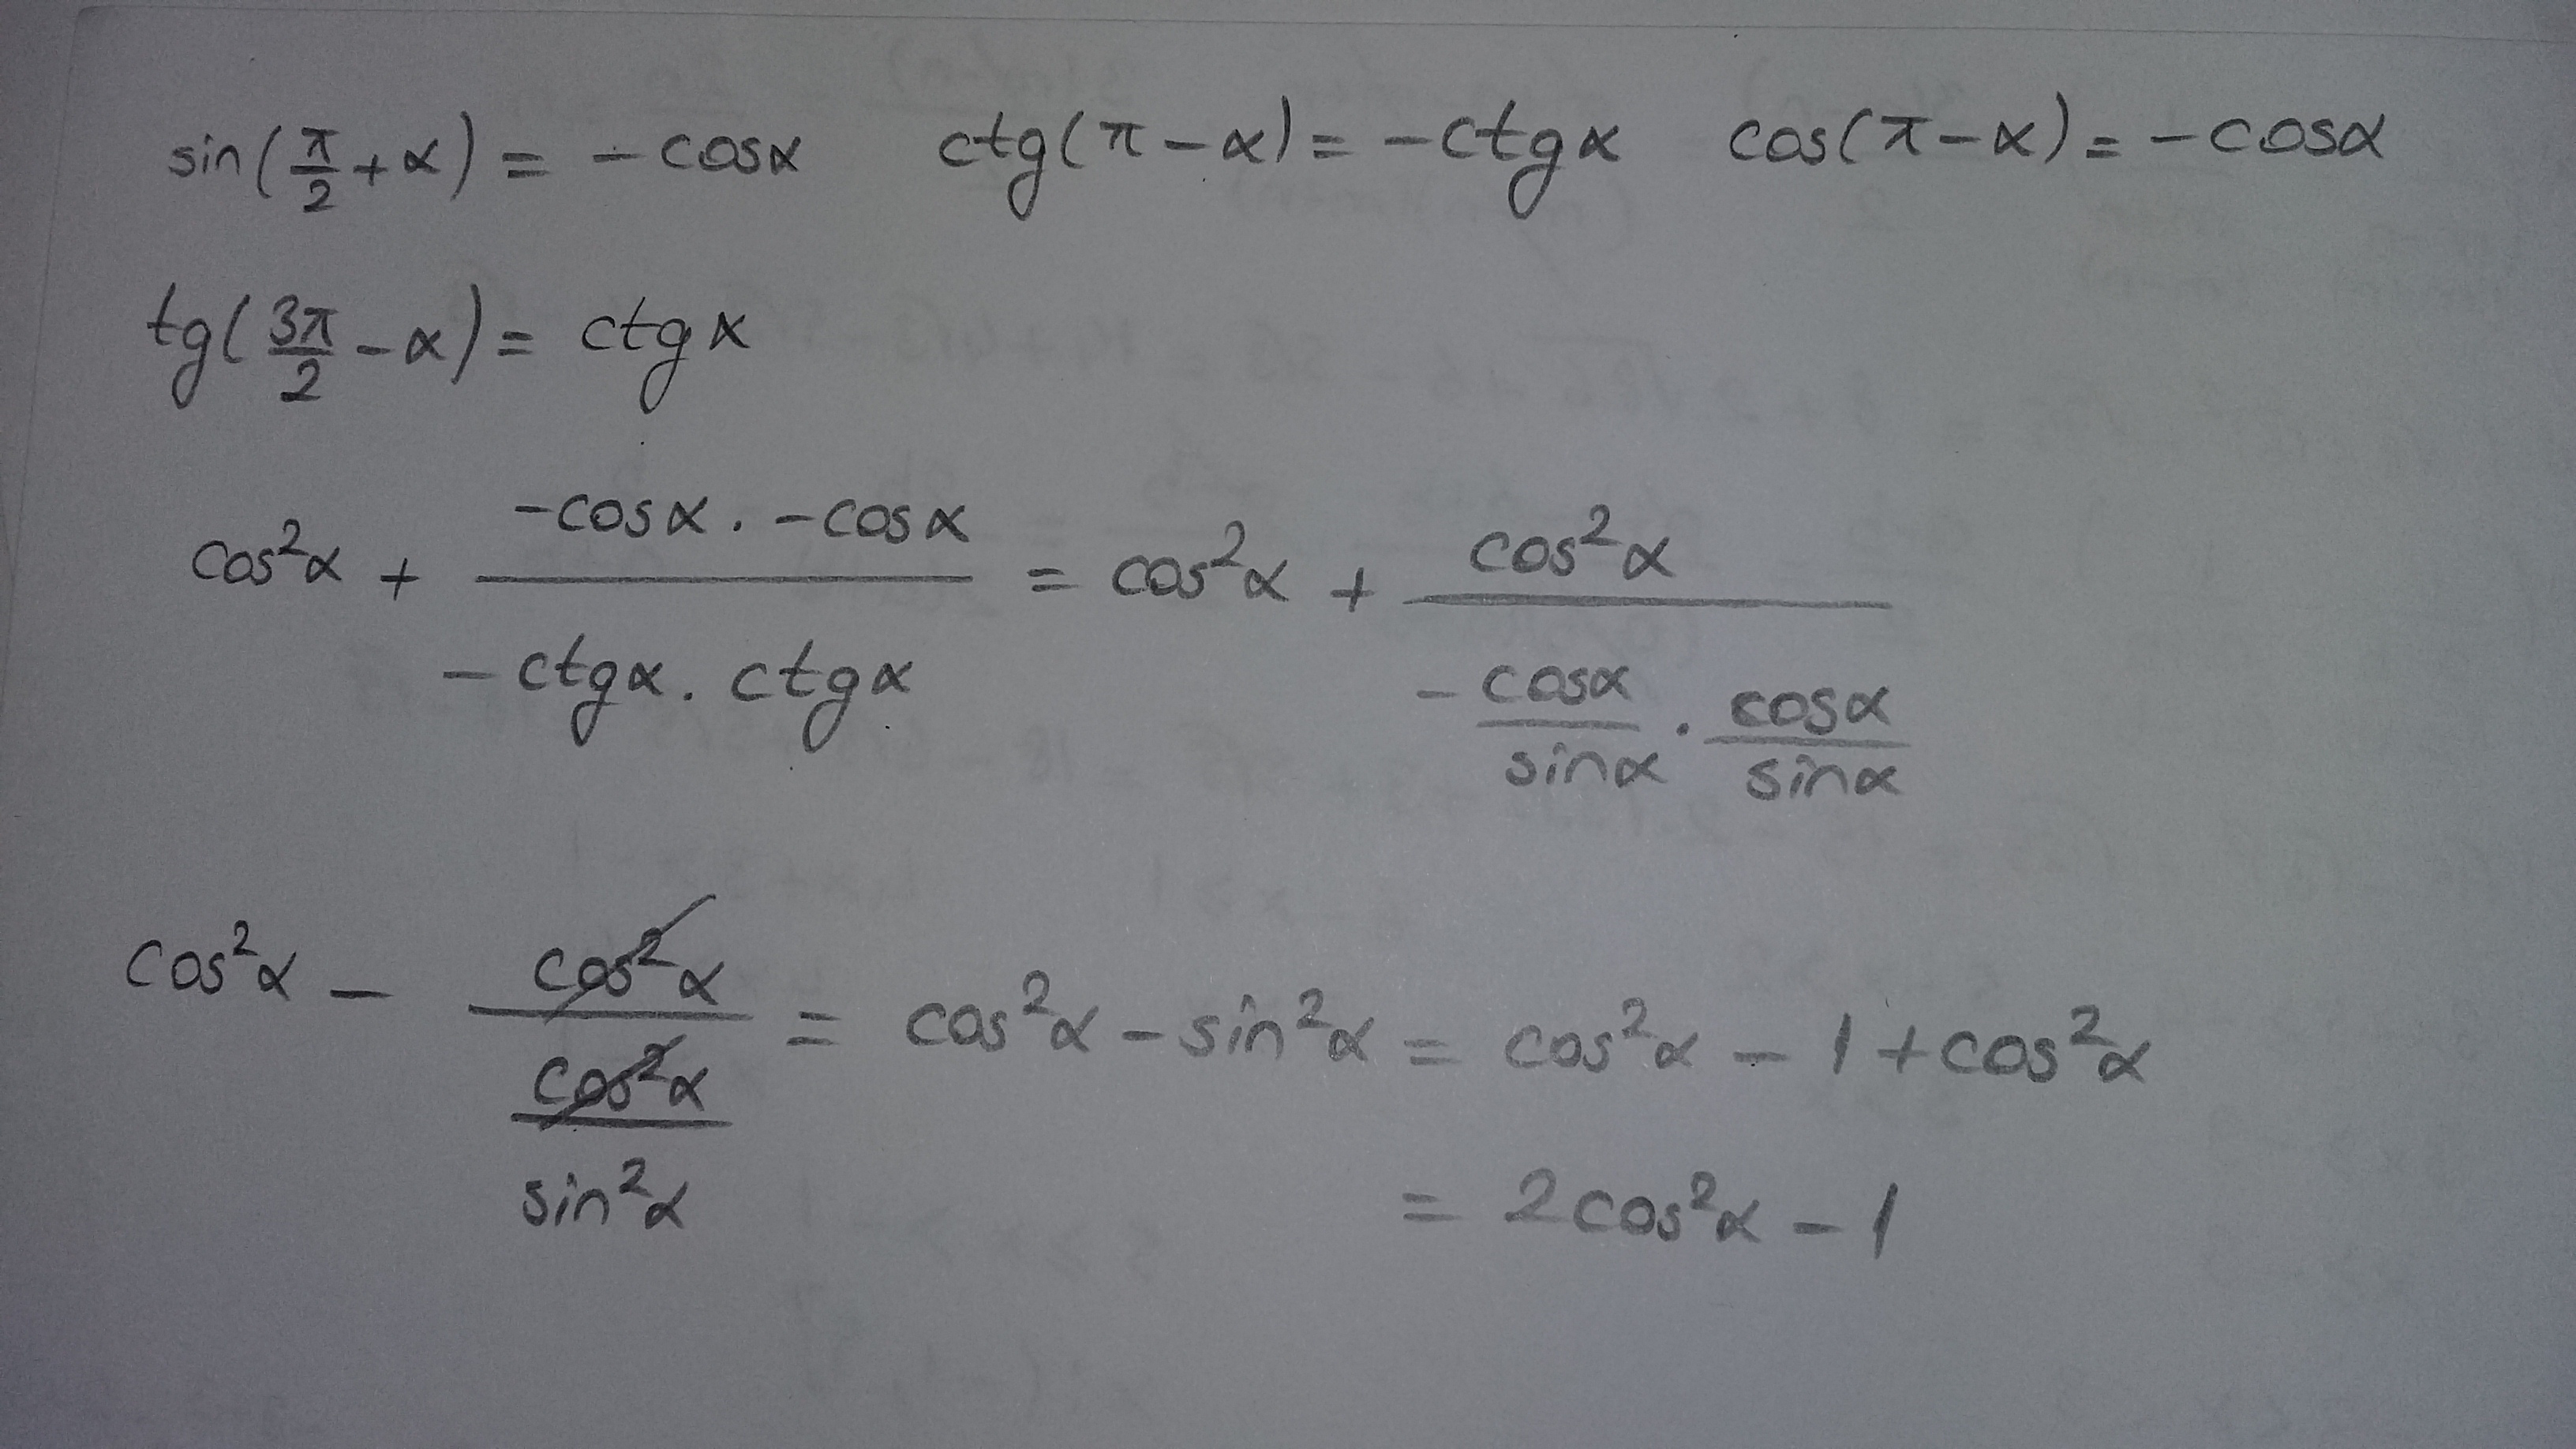 sin(π/2 + α) = -cosα ctg(π - α) = -ctgα cos(π - α) = -cosα
tg(3π/2 - α) = ctgα
cos²α + (-cosα · -cosα)/(-ctgα · ctgα) = cos²α + cos²α/(-cosα/sinα · cosα/sinα)
cos²α - cos²α/(cos²α/sin²α) = cos²α - sin²α = cos²α - 1 + cos²α
= 2cos²α - 1